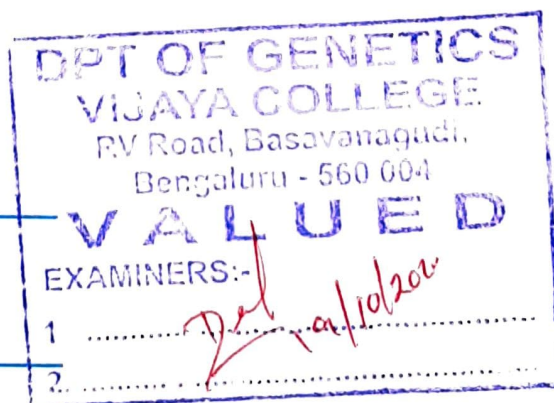 DPT OF GENETICS
VIJAYA COLLEGE
R.V Road, Basavanagudi,
Bengaluru - 560 004
VALUED
EXAMINERS:-
1
2